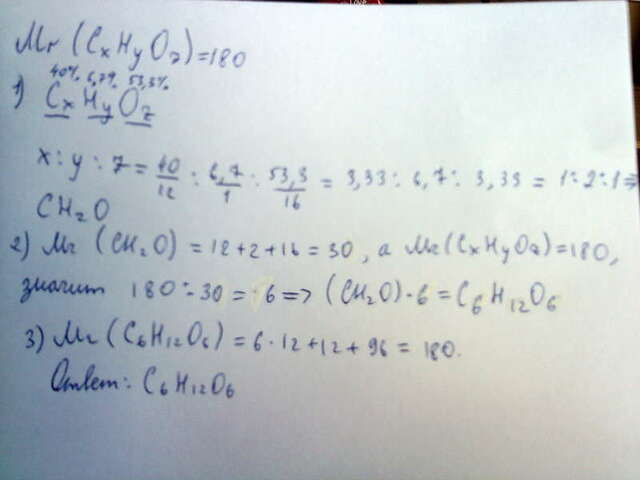 Mr (CxHyOz) = 180
40% 6,7% 53,3%
1) CxHyOz
x : y : z = 40/12 : 6,7/1 : 53,3/16 = 3,33 : 6,7 : 3,33 = 1:2:1 ⇒
CH2O
2) Mr (CH2O) = 12+2+16 = 30, а Mr(CxHyOz)=180,
значит 180 : 30 = 6 => (CH2O)·6 = C6H12O6
3) Mr (C6H12O6) = 6·12+12+96 = 180.
Ответ: C6H12O6